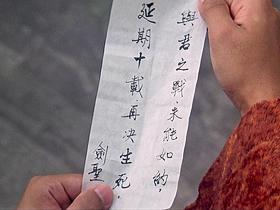 與君之戰,未能如約,
延期十載再決生死,
劍聖